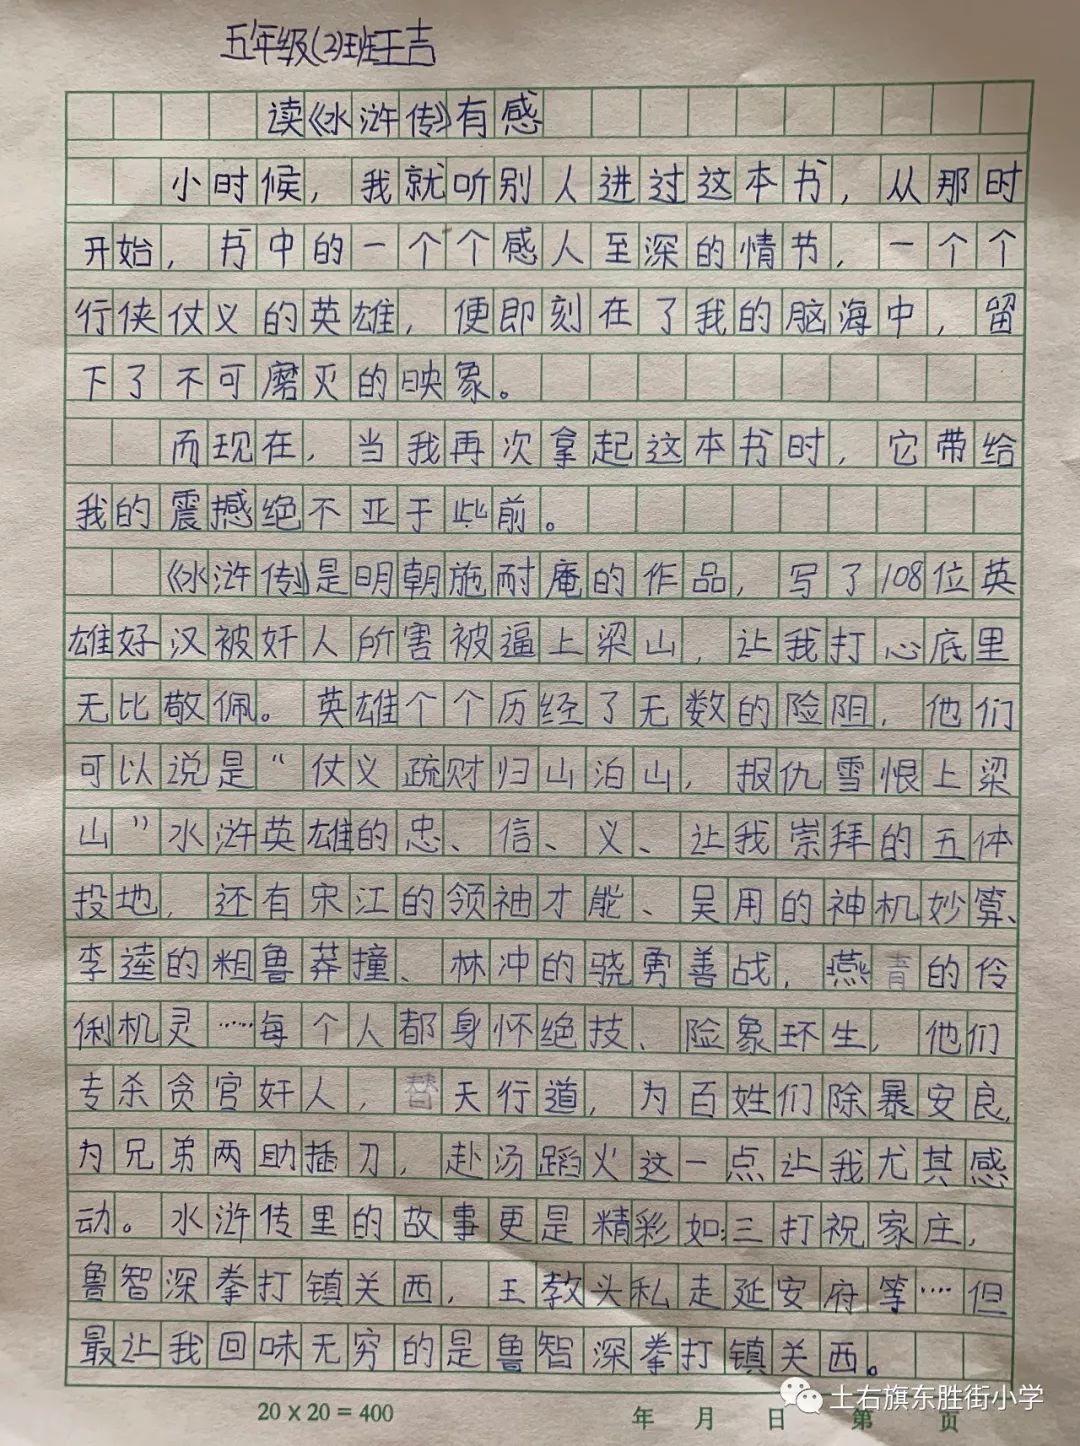 五年级(2)班王吉
读《水浒传》有感
小时候，我就听别人进过这本书，从那时
开始，书中的一个个感人至深的情节，一个个
行侠仗义的英雄，便即刻在了我的脑海中，留
下了不可磨灭的映象。
而现在，当我再次拿起这本书时，它带给
我的震撼绝不亚于此前。
《水浒传》是明朝施耐庵的作品，写了108位英
雄好汉被奸人所害被逼上梁山，让我打心底里
无比敬佩。英雄个个历经了无数的险阻，他们
可以说是“仗义疏财归山泊山，报仇雪恨上梁
山”水浒英雄的忠、信、义、让我崇拜的五体
投地，还有宋江的领袖才能、吴用的神机妙算、
李逵的粗鲁莽撞、林冲的骁勇善战，燕青的伶
俐机灵……每个人都身怀绝技、险象环生，他们
专杀贪官奸人，替天行道，为百姓们除暴安良，
为兄弟两肋插刀，赴汤蹈火这一点让我尤其感
动。水浒传里的故事更是精彩如:三打祝家庄，
鲁智深拳打镇关西，王教头私走延安府等……但
最让我回味无穷的是鲁智深拳打镇关西。
20×20=400 年 月 日 第 页
土右旗东胜街小学